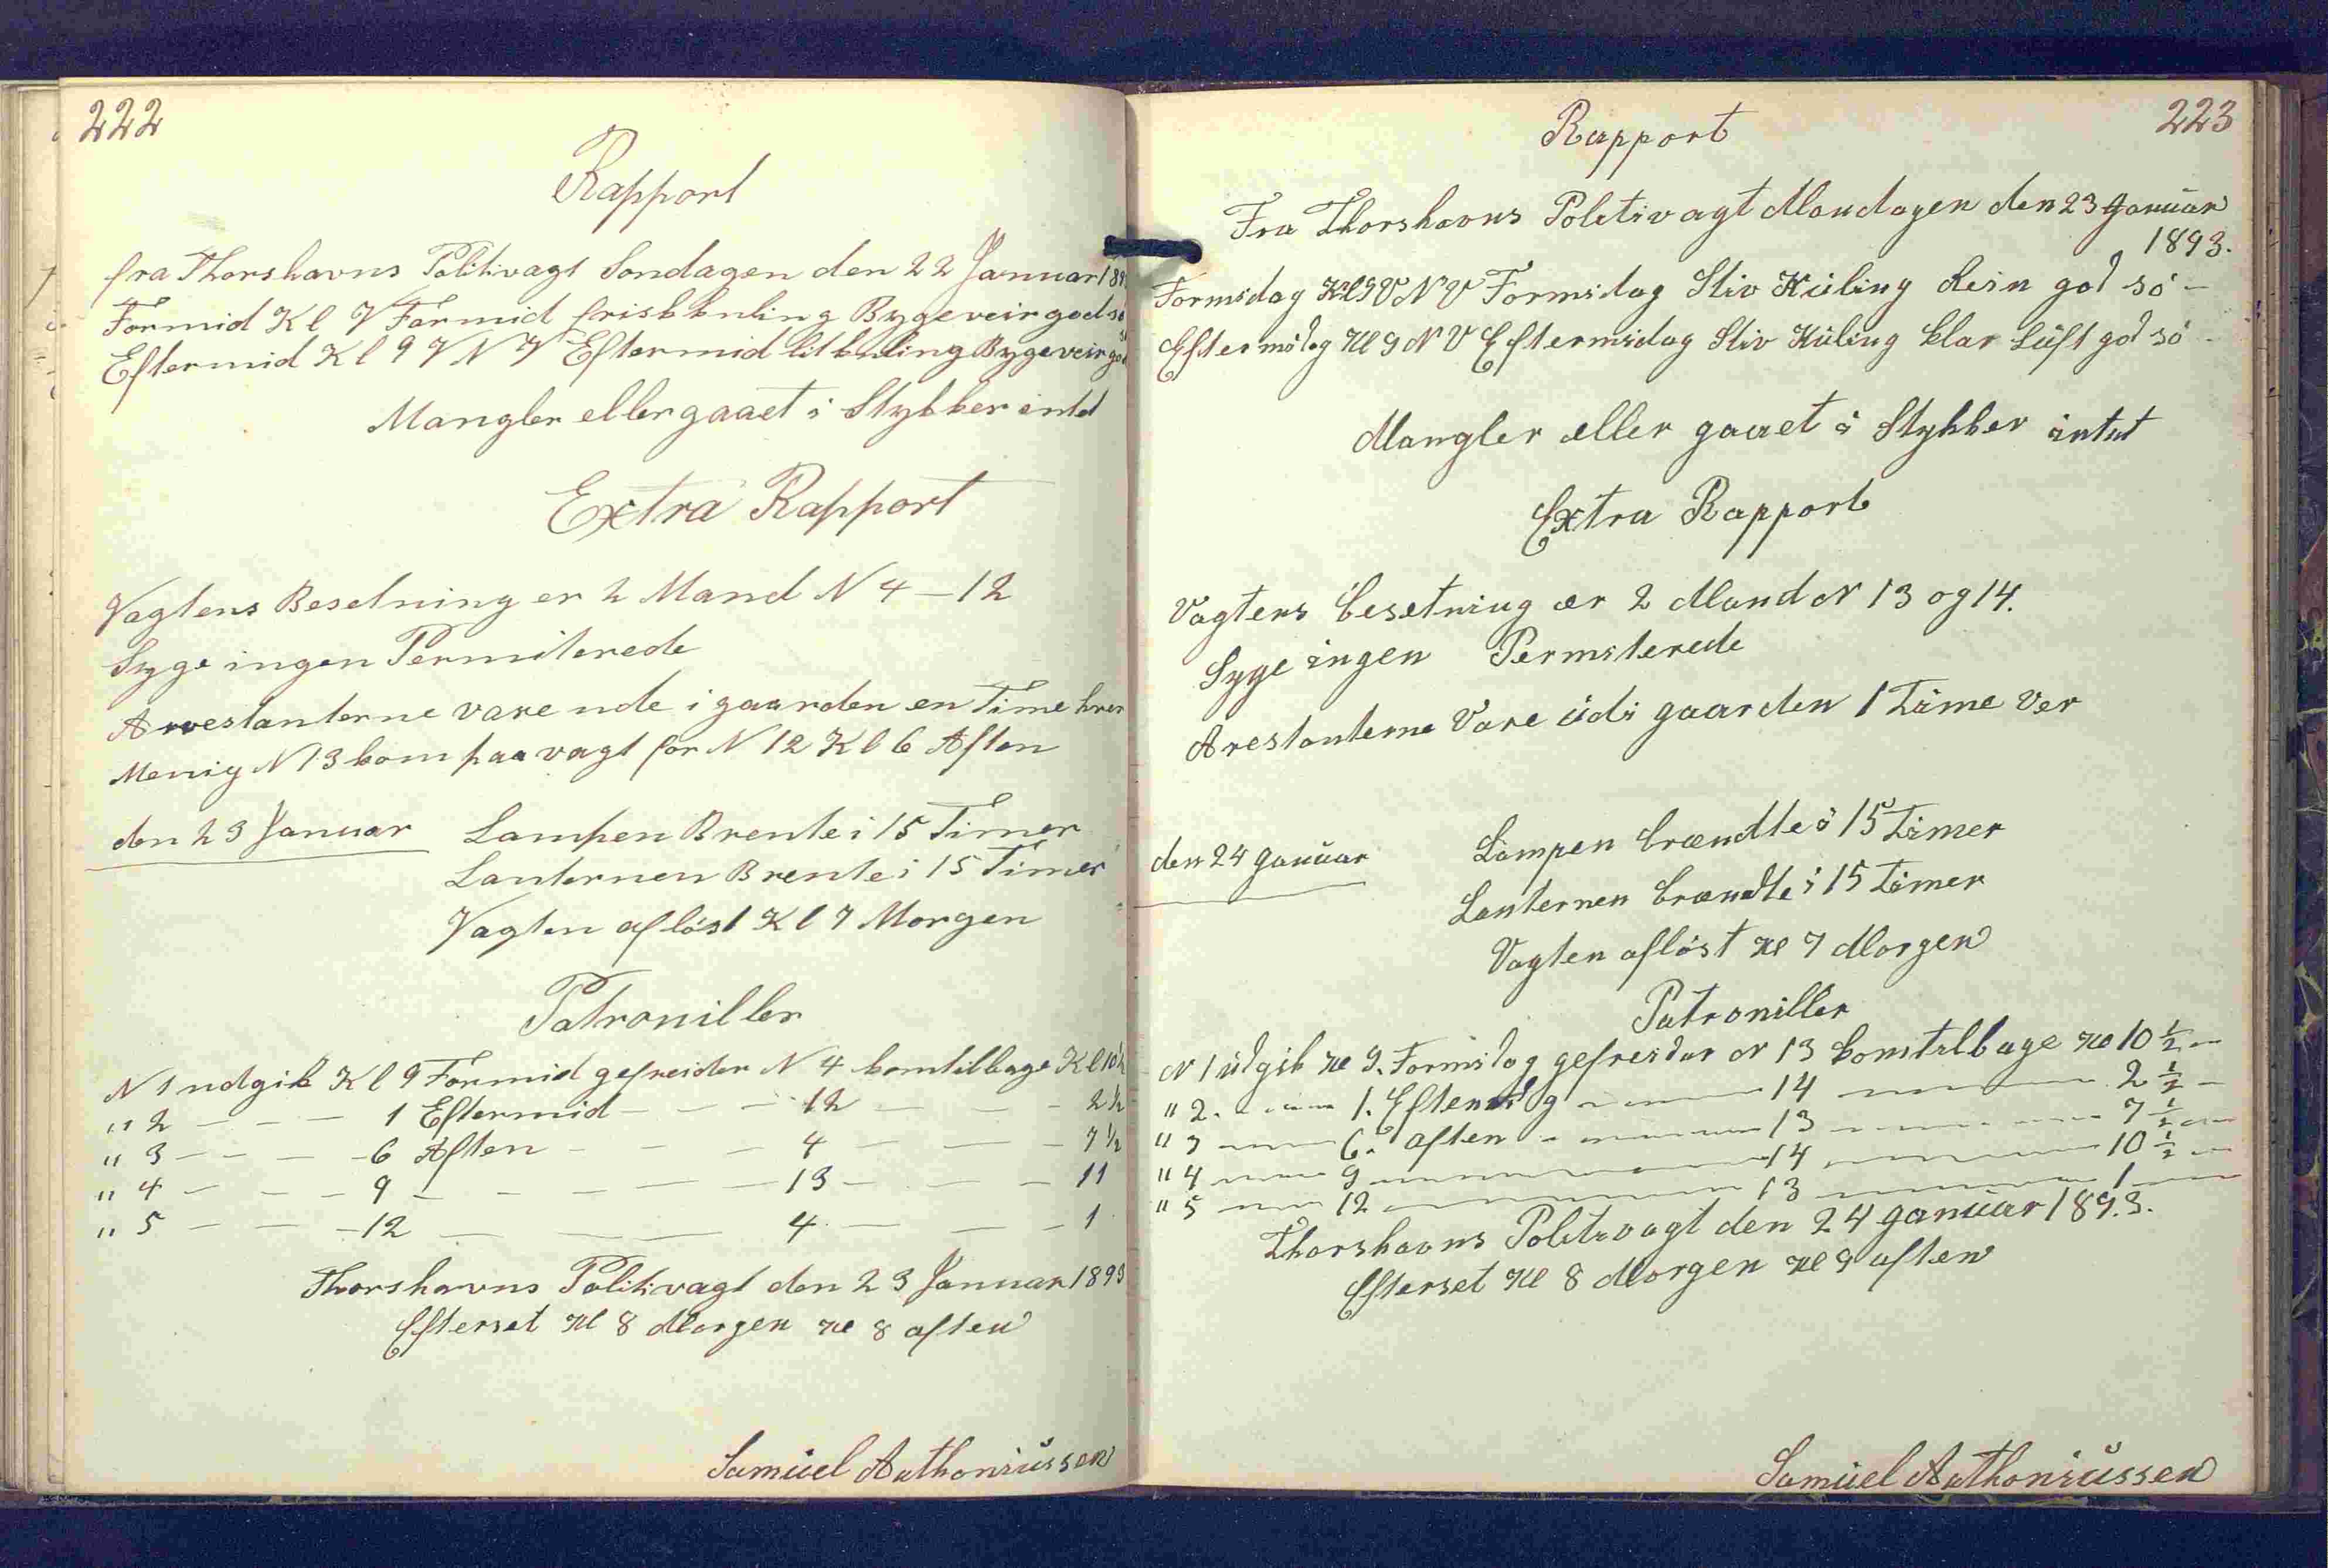 222
Rapport
fra Thorshavns Politivagt Søndagen den 22 Januar 189
Formid Kl V Formid friskkuling Bygeveir god sø
Eftermid Kl 9 V N V Eftermid litkuling Bygeveir god
Mangler eller gaaet i Stykker intet
Extra Rapport
Vagtens Besetning er 2 Mand N 4 – 12
Syge ingen Permiterede
Arrestanterne vare ude i gaarden en Time hver
Menig N 13 kom paa vagt for N 12 Kl 6 Aften
den 23 Januar Lampen Brente i 15 Timer
Lanternen Brente i 15 Timer
Vagten afløst Kl 7 Morgen
Patrouiller
N 1 udgik Kl 9 Formid gefreider N 4 kom tilbage Kl 10½
" 2 – – – 1 Eftermid – – – 12 – – – 2½
" 3 – – – 6 Aften – – – 4 – – – 7½
" 4 – – – 9 – – – – – 13 – – – 11
" 5 – – – 12 – – – 4 – – – 1
Thorshavns Politivagt den 23 Januar 1893
Efterset Kl 8 Morgen Kl 8 aften
Samuel Anthoniussen
223
Rapport
Fra Thorshavns Politivagt Mandagen den 23 Januar
1893.
Formidag Kl 9 V N V Formidag Stiv Kuling Rein god sø –
Eftermidag Kl 9 N V Eftermidag Stiv Kuling klar Luft god sø –
Mangler eller gaaet i Stykker intet
Extra Rapport
Vagtens besetning er 2 Mand N 13 og 14.
Syge ingen Permiterede
Arestanterne Vare udi gaarden 1 Time Ver
den 24 Januar Lampen brændte i 15 Timer
Lanternen brændte i 15 Timer
Vagten afløst Kl 7 Morgen
Patroniller
N 1 udgik Kl 9. Formidag gefreidar N 13 kom tilbage Kl 10 ½ –
" 2. – – 1. Eftermidag – – 14 – – 2 ½ –
" 3 – – 6. aften – – 13 – – 7 ½ –
" 4 – – 9 – – 14 – – 10 ½ –
" 5 – – 12 – – 13 – – 1 –
Thorshavns Politivagt den 24 Januar 1893.
Efterset Kl 8 Morgen Kl 9 aften
Samuel Anthoniussen